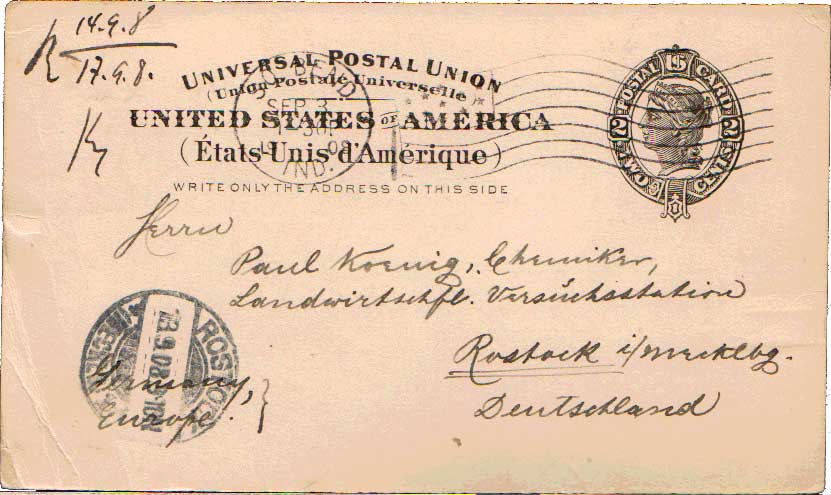 R 14.9.8
17.9.8.
UNIVERSAL POSTAL UNION
(Union Postale Universelle)
UNITED STATES OF AMERICA
(États-Unis d'Amérique)
WRITE ONLY THE ADDRESS ON THIS SIDE
SO. BEND
SEP 3
1908
IND.
POSTAL CARD
U.S.
2 2
CENTS
Herrn
Paul Koenig, Chemiker,
Landwirtschfl. Versuchsstation
Rostock i/Mecklbg.
Deutschland
ROSTOCK
13.9.08
Germany,
Europe.